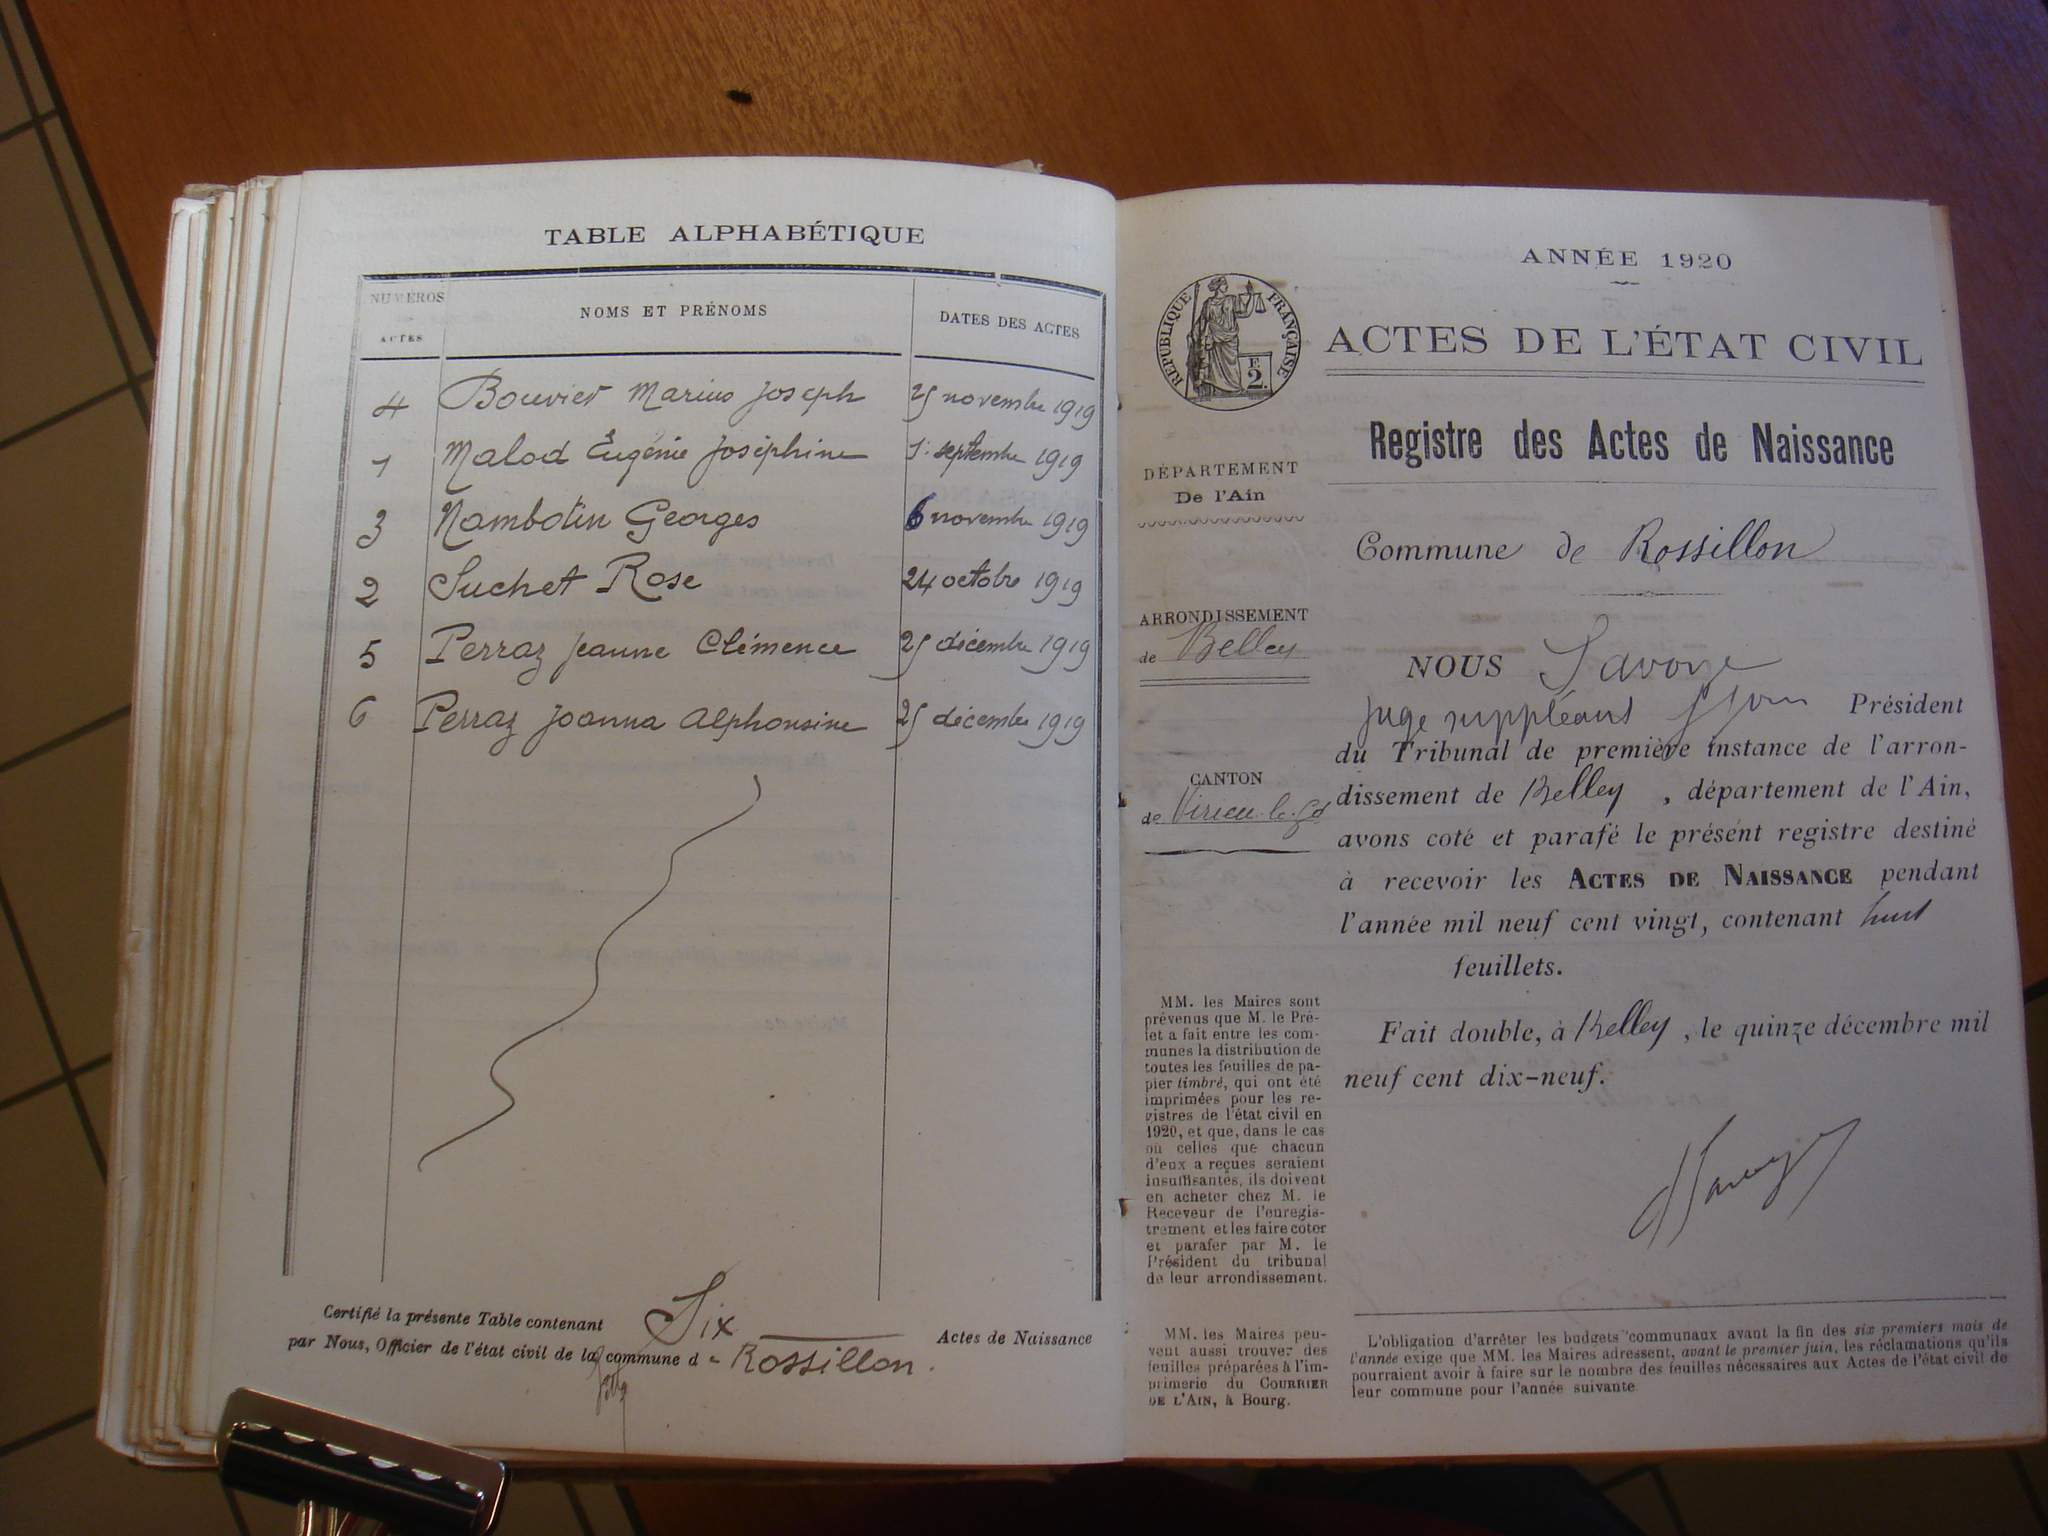 TABLE ALPHABÉTIQUE
NUMÉROS
ACTES
NOMS ET PRÉNOMS
DATES DES ACTES
4 Bouvier Marius Joseph 25 novembre 1919
1 Malod Eugénie Joséphine 1er septembre 1919
3 Nambotin Georges 6 novembre 1919
2 Suchet Rose 24 octobre 1919
5 Perraz Jeanne Clémence 25 décembre 1919
6 Perraz Joanna Alphonsine 25 décembre 1919
Certifié la présente Table contenant Six Actes de Naissance
par Nous, Officier de l'état civil de la commune de Rossillon.
ANNÉE 1920
RÉPUBLIQUE FRANÇAISE
F
2.
ACTES DE L'ÉTAT CIVIL
Registre des Actes de Naissance
DÉPARTEMENT
De l'Ain
Commune de Rossillon
ARRONDISSEMENT
de Belley
CANTON
de Virieu-le-Gd
NOUS Savoye
juge suppléant Président
du Tribunal de première instance de l'arron-
dissement de Belley, département de l'Ain,
avons coté et parafé le présent registre destiné
à recevoir les ACTES DE NAISSANCE pendant
l'année mil neuf cent vingt, contenant huit
feuillets.
Fait double, à Belley, le quinze décembre mil
neuf cent dix-neuf.
Savoye
MM. les Maires sont
prévenus que M. le Pré-
fet a fait entre les com-
munes la distribution de
toutes les feuilles de pa-
pier timbré, qui ont été
imprimées pour les re-
gistres de l'état civil en
1920, et que, dans le cas
où celles que chacun
d'eux a reçues seraient
insuffisantes, ils doivent
en acheter chez M. le
Receveur de l'enregis-
trement et les faire coter
et parafer par M. le
Président du tribunal
de leur arrondissement.
MM. les Maires peu-
vent aussi trouver des
feuilles préparées à l'im-
primerie du COURRIER
DE L'AIN, à Bourg.
L'obligation d'arrêter les budgets communaux avant la fin des six premiers mois de
l'année exige que MM. les Maires adressent, avant le premier juin, les réclamations qu'ils
pourraient avoir à faire sur le nombre des feuilles nécessaires aux Actes de l'état civil de
leur commune pour l'année suivante.